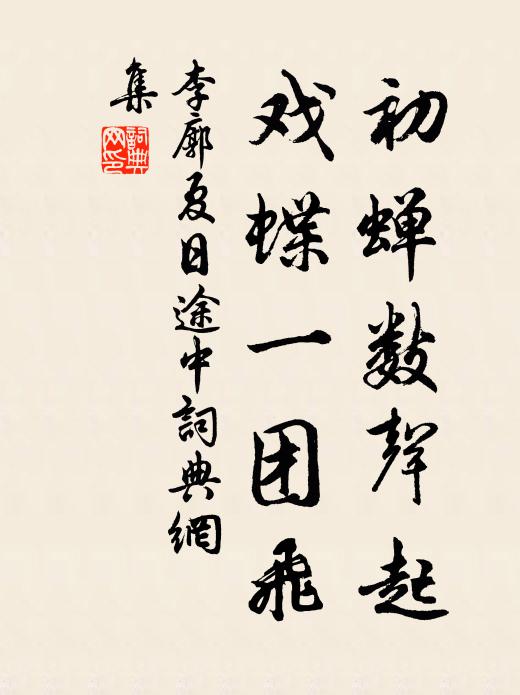 初蝉数声起
戏蝶一团飞
李廓夏日途中詞典網
集
詞典
网印